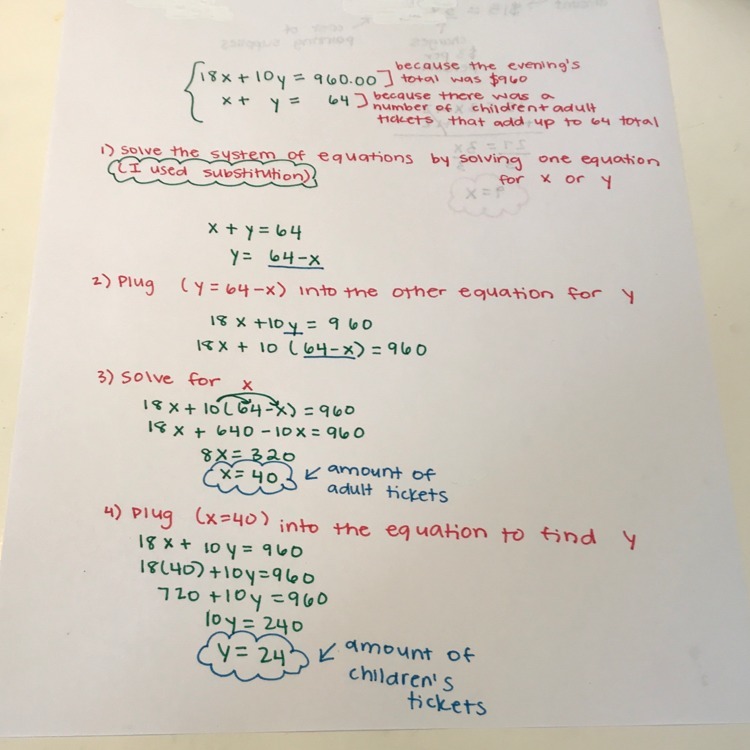 18x + 10y = 960.00] because the evening's
total was $960
x + y = 64] because there was a
number of children + adult
tickets that add up to 64 total
1) solve the system of equations by solving one equation
(I used substitution) for x or y
x + y = 64
y = 64-x
2) Plug (y = 64-x) into the other equation for y
18x + 10y = 960
18x + 10 (64-x) = 960
3) Solve for x
18x + 10(64-x) = 960
18x + 640 - 10x = 960
8x = 320
x = 40 ↙ amount of
adult tickets
4) Plug (x=40) into the equation to find y
18x + 10y = 960
18(40) + 10y = 960
720 + 10y = 960
10y = 240
y = 24 ↙ amount of
children's
tickets